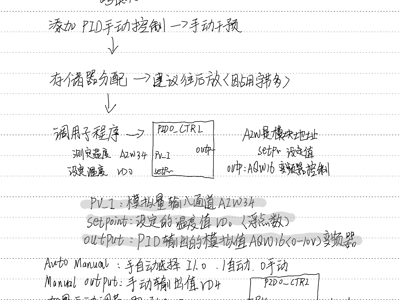 添加PID手动控制→手动干预
↓
存储器分配→建议往后放(占用字节多)
↓
调用子程序→
PID0_CTRL
AIW是模块地址
测定温度 AIW34 PV_I output setpoint 设定值
设定温度 VD0 setp output:AQW16 变频器控制
PV_I:模拟量输入通道AIW34
setpoint:设定的温度值VD0(浮点数)
output:PID输出的模拟值AQW16(0-10V)变频器
Auto Manual:手自动选择 I1.0 .1自动.0手动
Manual output:手动输出值VD4
PID0_CTRL